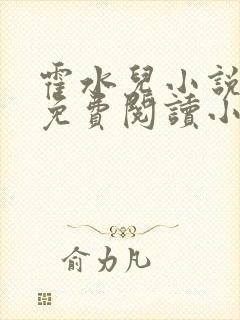 霍水兒小說
免費閱讀小
俞力凡